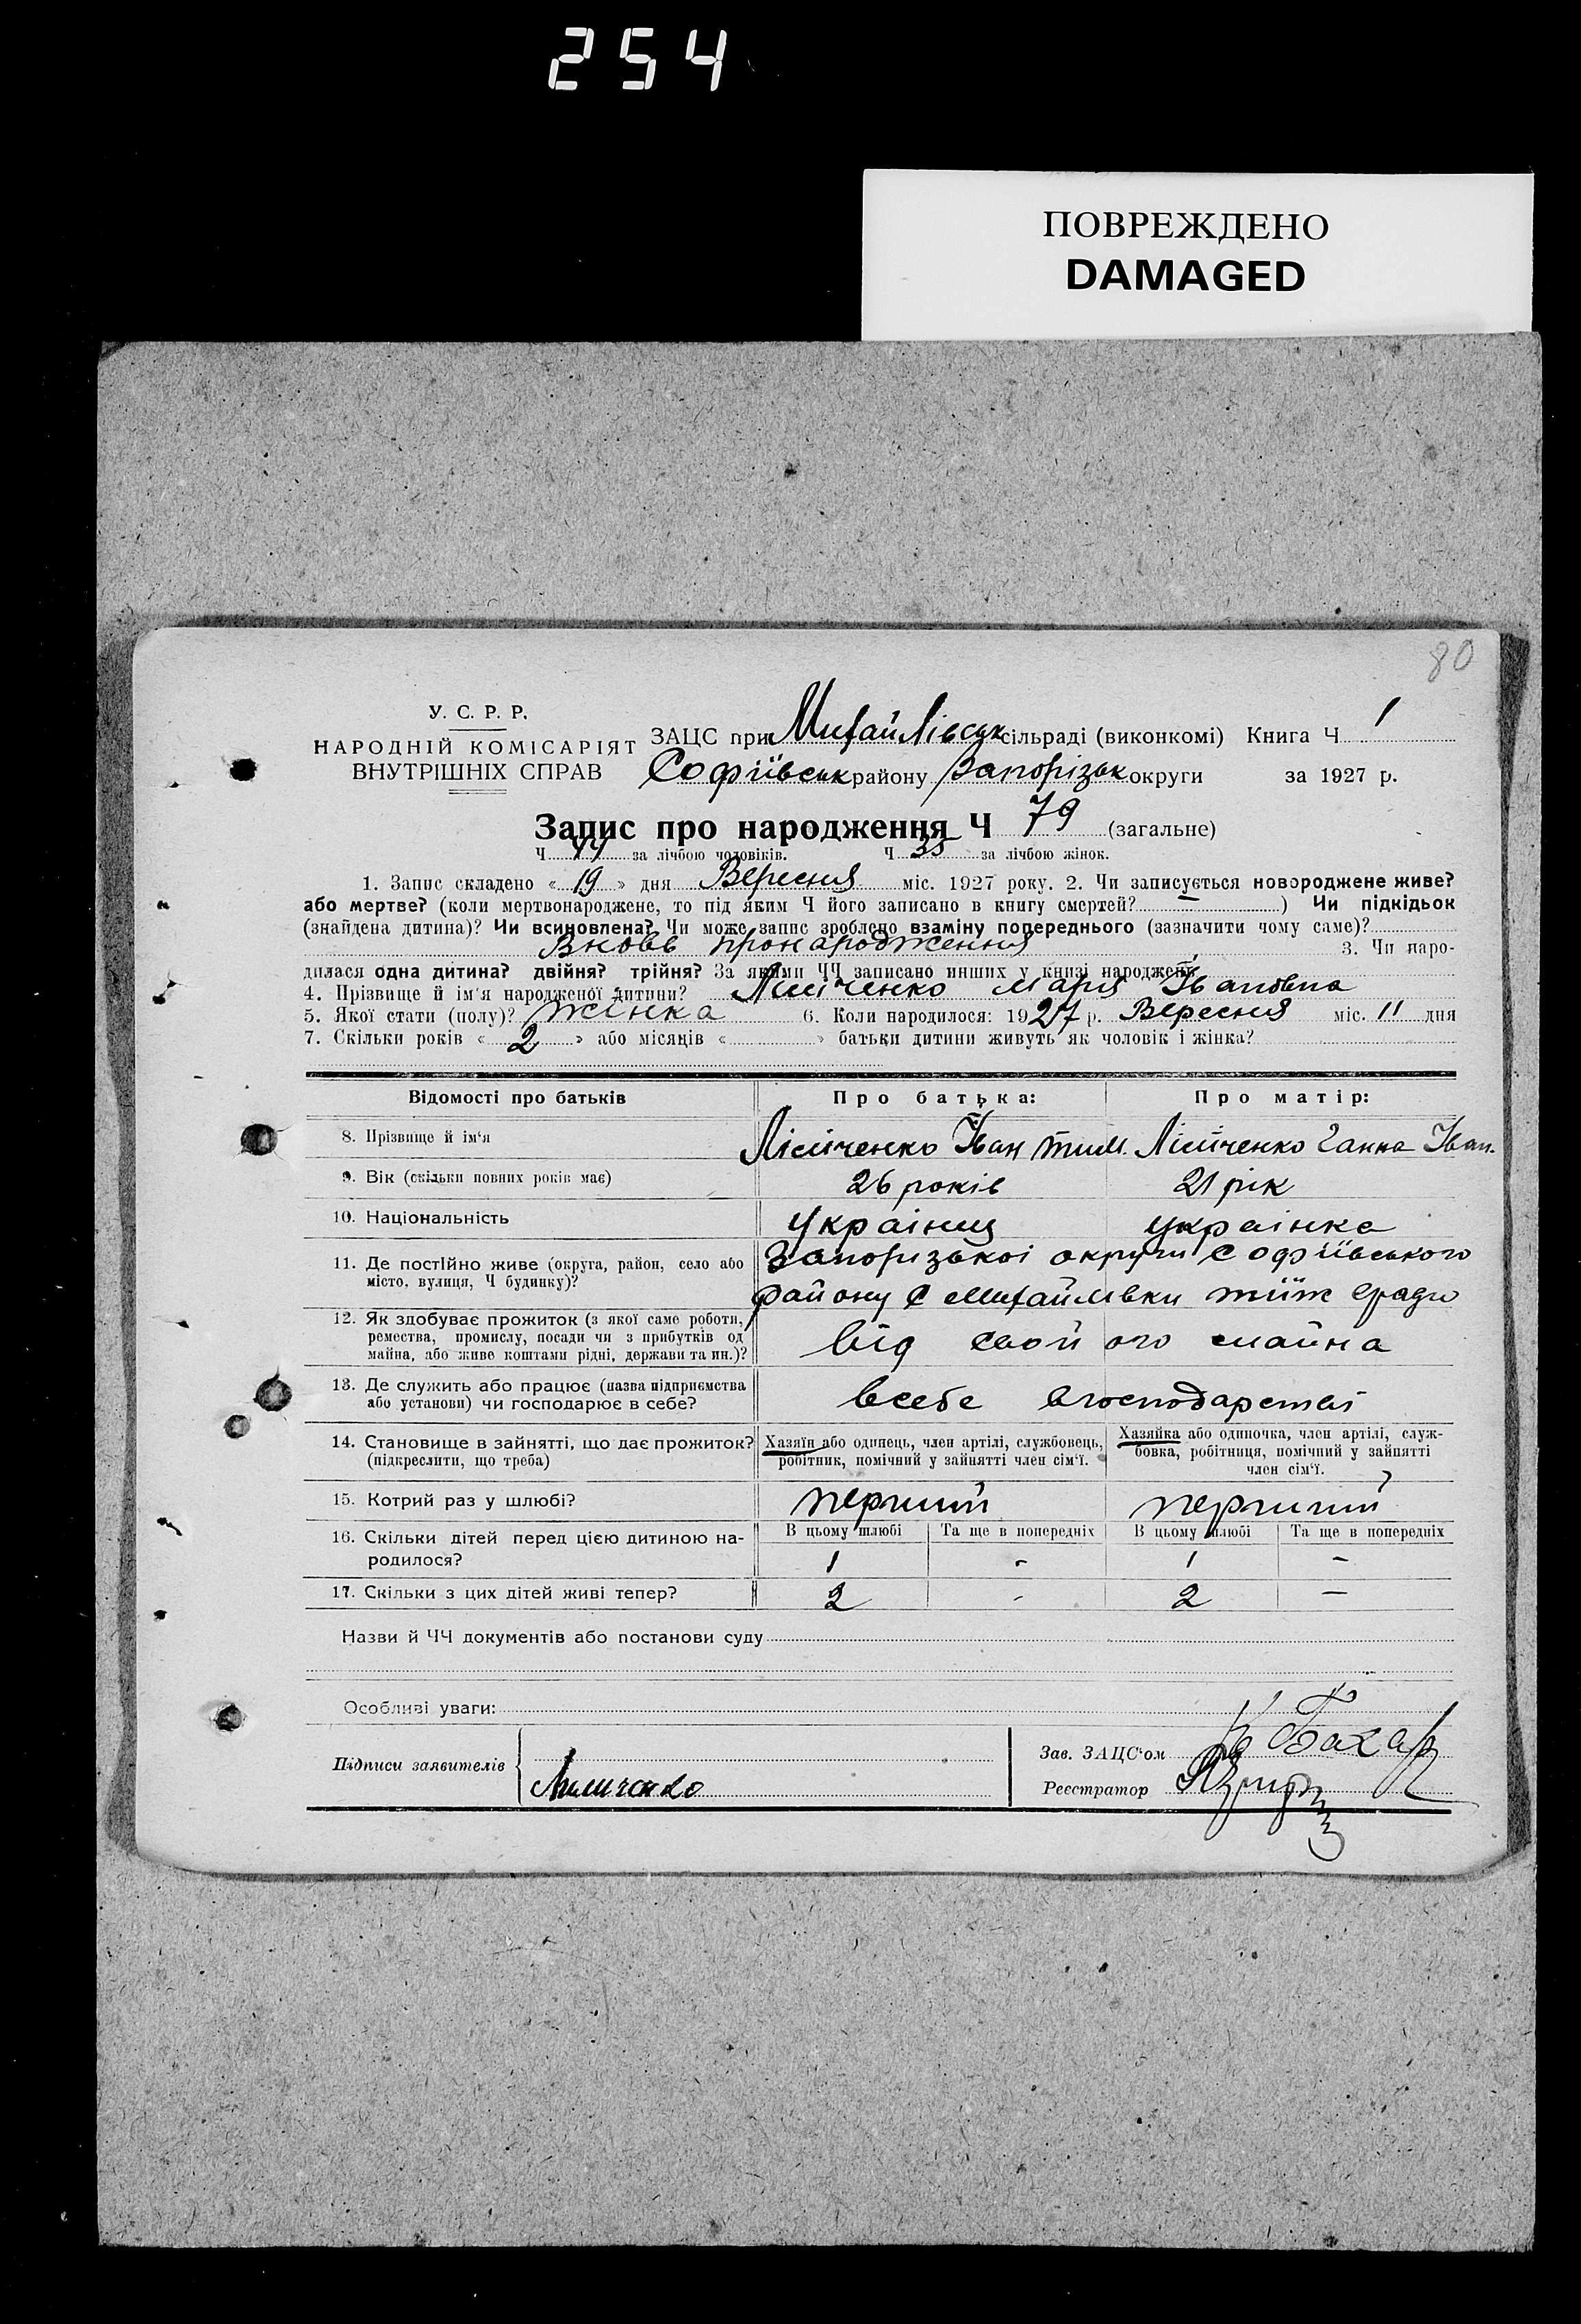 254
ПОВРЕЖДЕНО
DAMAGED
80
У. С. Р. Р.
НАРОДНІЙ КОМІСАРІЯТ
ВНУТРІШНІХ СПРАВ
ЗАЦС при Михайлівськ сільраді (виконкомі) Книга Ч 1
Софіївськ району Запорізьк округи за 1927 р.
Запис про народження Ч 79 (загальне)
Ч 44 за лічбою чоловіків. Ч 35 за лічбою жінок.
1. Запис складено « 19 » дня Вересня міс. 1927 року. 2. Чи записується новороджене живе?
або мертве? (коли мертвонароджене, то під яким Ч його записано в книгу смертей? — ) Чи підкідьок
(знайдена дитина)? Чи всиновлена? Чи може запис зроблено взаміну попереднього (зазначити чому саме)?
Вновь пронародження 3. Чи наро-
дилася одна дитина? двійня? трійня? За якими ЧЧ записано инших у книзі народжень
4. Прізвище й ім'я народженої дитини? Лісіченко Марія Івановна
5. Якої стати (полу)? Жінка 6. Коли народилося: 1927 р. Вересня міс. 11 дня
7. Скільки років « 2 » або місяців « » батьки дитини живуть як чоловік і жінка?
Відомості про батьків Про батька: Про матір:
8. Прізвище й ім'я Лісіченко Іван Тим. Лісіченко Ганна Іван.
9. Вік (скільки повних років має) 26 років 21 рік
10. Національність Украінец украінка
11. Де постійно живе (округа, район, село або Запорізькоі округи Софіївського
місто, вулиця, Ч будинку)? району С Михайлівки тіїж сради
12. Як здобуває прожиток (з якої саме роботи,
ремества, промислу, посади чи з прибутків од від свойого майна
майна, або живе коштами рідні, держави та ин.)?
13. Де служить або працює (назва підприємства всебе вгосподарстві
або установи) чи господарює в себе?
14. Становище в зайнятті, що дає прожиток? Хазяїн або одинець, член артілі, службовець, Хазяйка або одиночка, член артілі, служ-
(підкреслити, що треба) робітник, помічний у зайнятті член сім'ї. бовка, робітниця, помічний у зайнятті
член сім'ї.
15. Котрий раз у шлюбі? перший перший
16. Скільки дітей перед цією дитиною на- В цьому шлюбі Та ще в попередніх В цьому шлюбі Та ще в попередніх
родилося? 1 - 1 -
17. Скільки з цих дітей живі тепер? 2 - 2 —
Назви й ЧЧ документів або постанови суду
Особливі уваги:
Підписи заявителів Зав. ЗАЦС'ом
Лисиченко Реєстратор